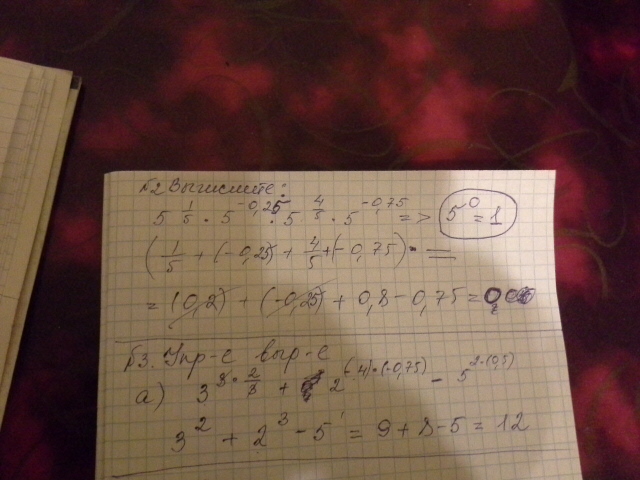 №2 Вычислите:
5^(1/5) · 5^(-0,25) · 5^(4/5) · 5^(-0,75) => 5^0 = 1
(1/5 + (-0,25) + 4/5 + (-0,75)) =
= (0,2) + (-0,25) + 0,8 - 0,75 = 0
№3. Упр-е выр-е
а) 3^(3·2/3) + 2^((-4)·(-0,75)) - 5^(2·(0,5))
3^2 + 2^3 - 5^1 = 9 + 8 - 5 = 12